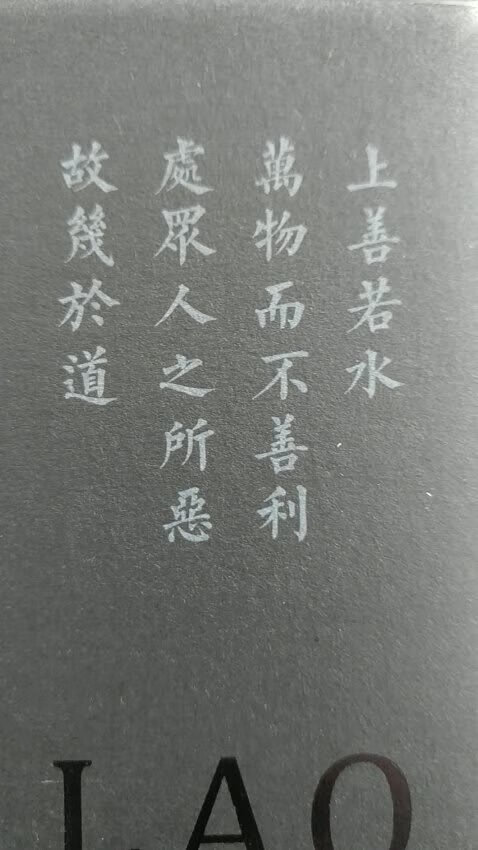 上善若水
萬物而不善利
處眾人之所惡
故幾於道
LAO